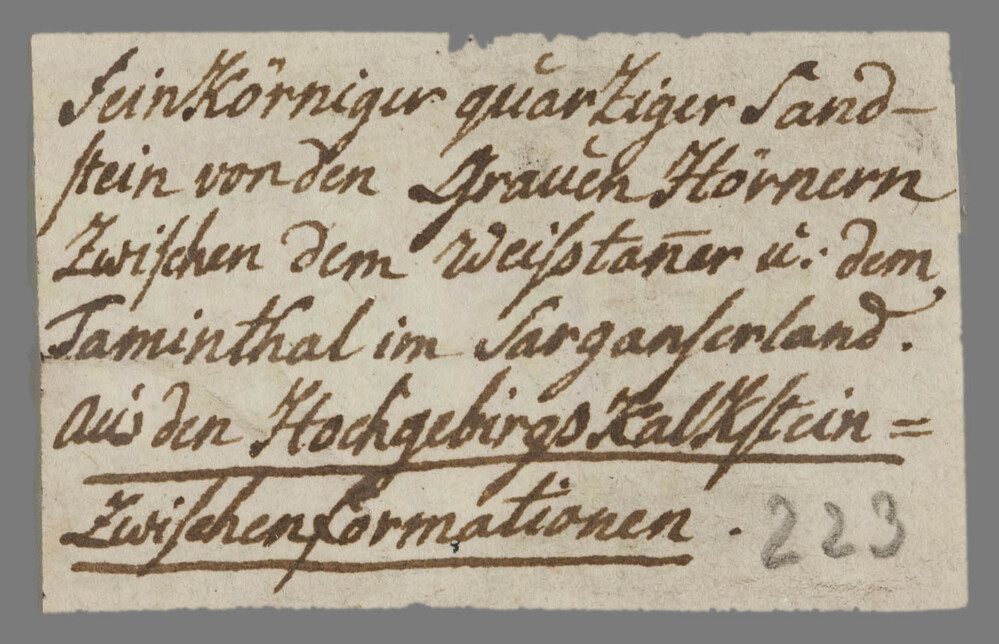 FeinKörniger quarziger Sand-
stein von den Grauen Hörnern
Zwischen dem Weisstan̄er u: dem
Taminthal im Sarganserland.
aus den Hochgebirgs Kalkstein=
Zwischenformationen. 223